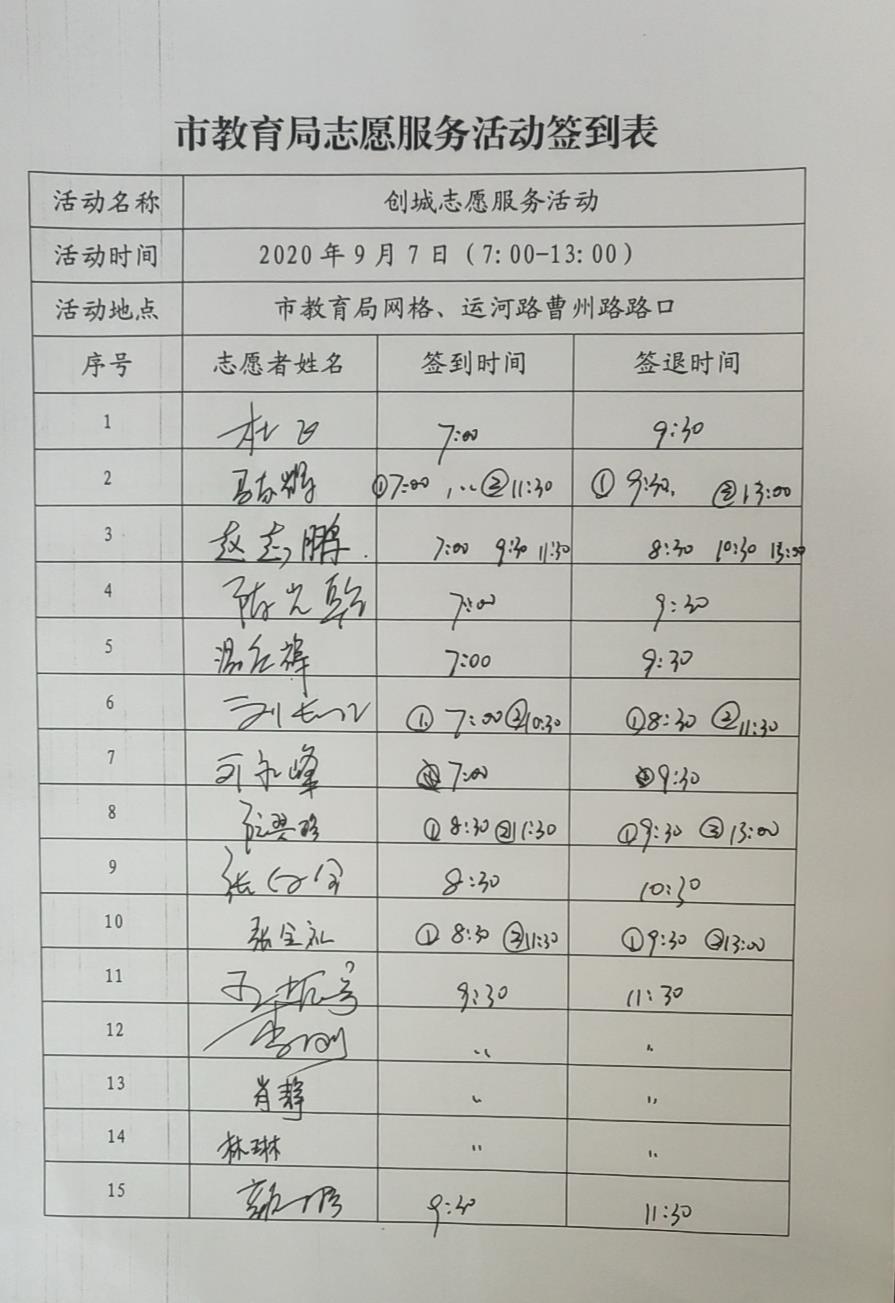 市教育局志愿服务活动签到表
活动名称 创城志愿服务活动
活动时间 2020年9月7日(7:00-13:00)
活动地点 市教育局网格、运河路曹州路路口
序号 志愿者姓名 签到时间 签退时间
1 杜飞 7:00 9:30
2 ①7:00 ②11:30 ①9:30. ②13:00
3 赵志鹏. 7:00 9:30 11:30 8:30 10:30 13:00
4 7:00 9:30
5 7:00 9:30
6 ①7:00 ②10:30 ①8:30 ②11:30
7 7:00 9:30
8 ①8:30 ②11:30 ①9:30 ②13:00
9 8:30 10:30
10 张全礼 ①8:30 ②11:30 ①9:30 ②13:00
11 9:30 11:30
12 〃 〃
13 肖静 〃 〃
14 林琳 〃 〃
15 9:30 11:30